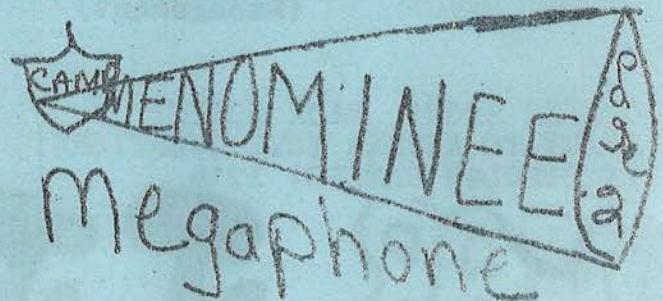 CAMP MENOMINEE
page 2
Megaphone